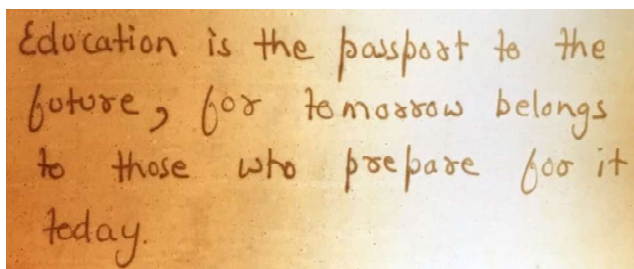 Education is the passport to the
future, for tomorrow belongs
to those who prepare for it
today.